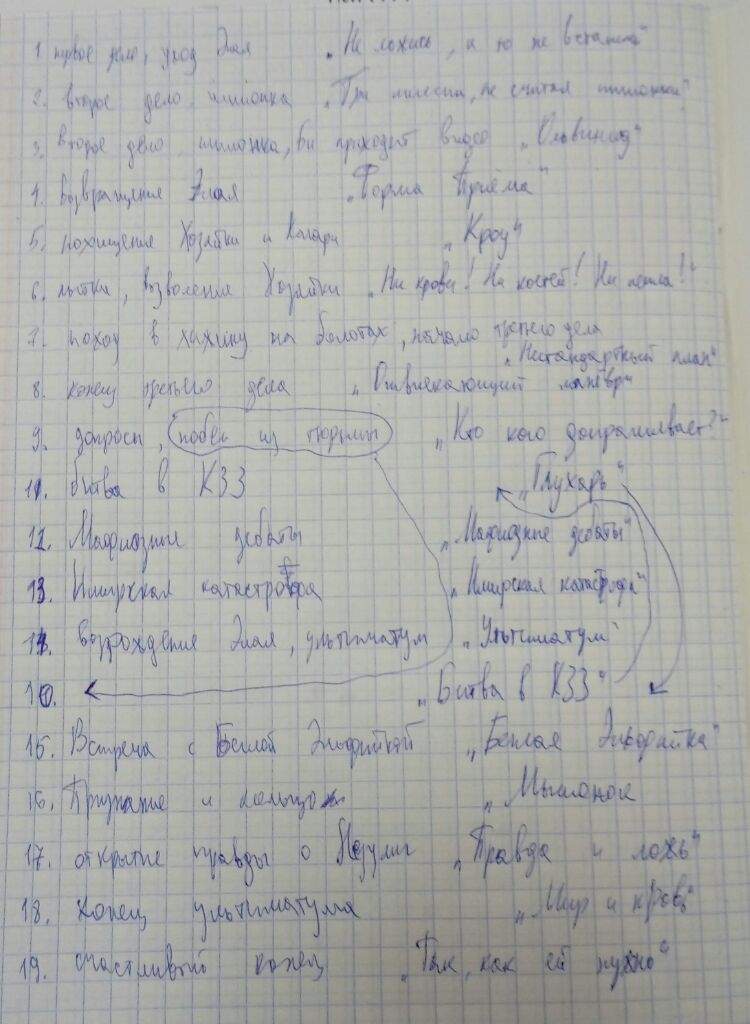 1. первое дело, уход Элая „Не ложись, а то не встанешь"
2. второе дело, шпионка „Три миссии, не считая шпионки"
3. второе дело шпионка, Би приходит видео
4. Возвращение Элая „Форма Приёма"
5. похищение Хозяйки и „Кроу"
6. пытки, вызволение Хозяйки „Ни крови! Ни костей! Ни пепла!"
7. поход в хижину на болотах, начало третьего дела
„Нестандартный план"
8. конец третьего дела „Отвлекающий манёвр"
9. допросы, побег из тюрьмы „Кто кого допрашивает?"
11. Битва в КЗЗ „Глухарь"
12. Мафиозные дебаты „Мафиозные дебаты"
13. катастрофа катастрофа"
14. возрождение Элая, ультиматум „Ультиматум"
10. „Битва в КЗЗ"
15. Встреча с Белой Эльфийкой „Белая Эльфийка"
16. и кольцо „Мышонок
17. открытие правды о „Правда и ложь"
18. конец ультиматума „Мир и кровь"
19. счастливый конец „Так, как ей нужно"